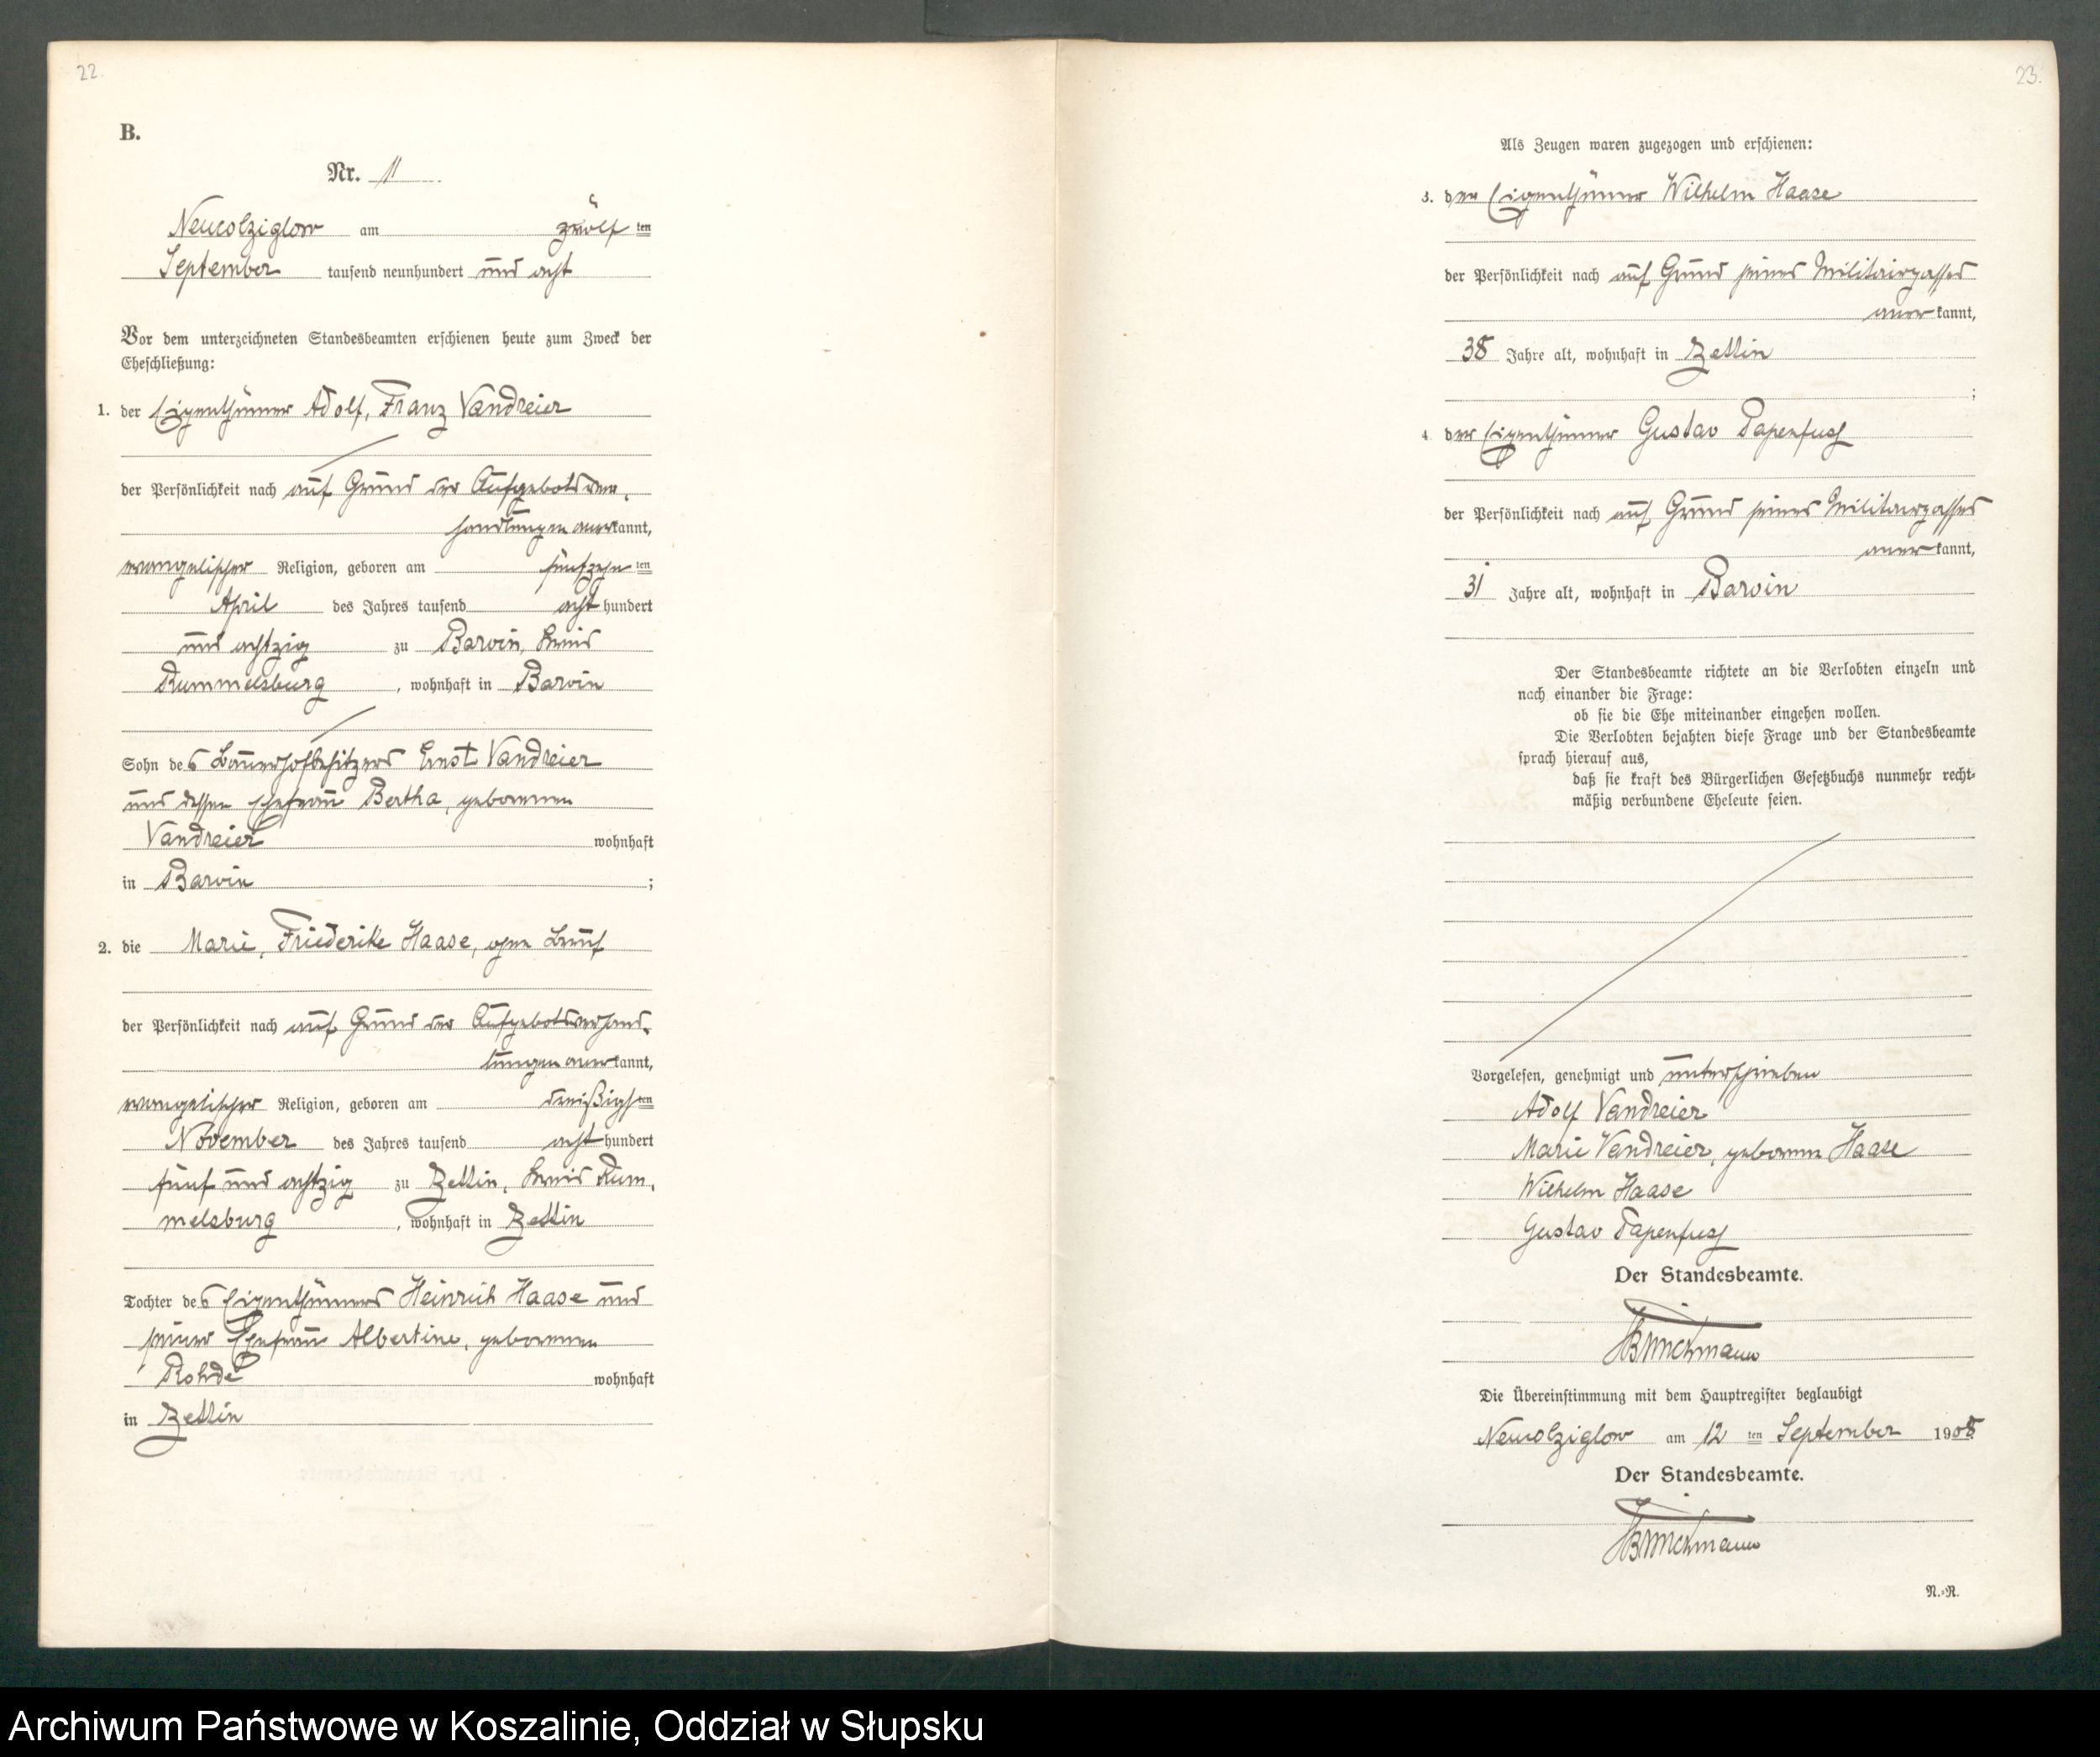 22.
B.
Nr. 11
Neukolziglow am zwölf ten
September tausend neunhundert und acht
Vor dem unterzeichneten Standesbeamten erschienen heute zum Zweck der
Eheschließung:
1. der Eigenthümer Adolf, Franz Vandreier
der Persönlichkeit nach auf Grund der Aufgebotsver-
handlungen anerkannt,
evangelischer Religion, geboren am fünfzehn ten
April des Jahres tausend acht hundert
und achtzig zu Barvin, Kreis
Rummelsburg, wohnhaft in Barvin
Sohn des Bauerhofbesitzers Ernst Vandreier
und dessen Ehefrau Bertha, geborenen
Vandreier wohnhaft
in Barvin ;
2. die Marie, Friederike Haase, ohne Beruf
der Persönlichkeit nach auf Grund der Aufgebotsverhand-
lungen anerkannt,
evangelischer Religion, geboren am dreißigsten
November des Jahres tausend acht hundert
fünf und achtzig zu Zettin, Kreis Rum-
melsburg, wohnhaft in Zettin
Tochter des Eigenthümers Heinrich Haase und
seiner Ehefrau Albertine, geborenen
Rohde wohnhaft
in Zettin
23.
Als Zeugen waren zugezogen und erschienen:
3. der Eigenthümer Wilhelm Haase
der Persönlichkeit nach auf Grund seines Militairpasses
anerkannt,
38 Jahre alt, wohnhaft in Zettin
;
4. der Eigenthümer Gustav Papenfuß
der Persönlichkeit nach auf Grund seines Militairpasses
anerkannt,
31 Jahre alt, wohnhaft in Barvin
Der Standesbeamte richtete an die Verlobten einzeln und
nach einander die Frage:
ob sie die Ehe miteinander eingehen wollen.
Die Verlobten bejahten diese Frage und der Standesbeamte
sprach hierauf aus,
daß sie kraft des Bürgerlichen Gesetzbuchs nunmehr recht-
mäßig verbundene Eheleute seien.
Vorgelesen, genehmigt und unterschrieben
Adolf Vandreier
Marie Vandreier, geborene Haase
Wilhelm Haase
Gustav Papenfuß
Der Standesbeamte.
Brinckmann
Die Übereinstimmung mit dem Hauptregister beglaubigt
Neukolziglow am 12 ten September 1908
Der Standesbeamte.
Brinckmann
N.-R.
Archiwum Państwowe w Koszalinie, Oddział w Słupsku